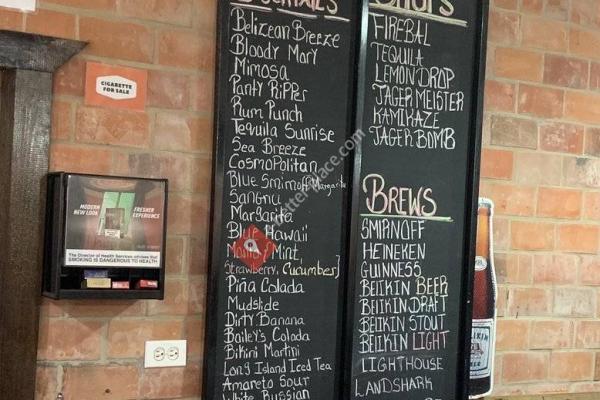 COCKTAILS
Belizean Breeze
Bloody Mary
Mimosa
Panty Ripper
Rum Punch
Tequila Sunrise
Sea Breeze
Cosmopolitan
Blue Smirnoff Margarita
Sangria
Margarita
Blue Hawaii
Mojito [Mint,
Strawberry, Cucumber]
Piña Colada
Mudslide
Dirty Banana
Bailey's Colada
Bikini Martini
Long Island Iced Tea
Amareto Sour
White Russian
SHOTS
FIREBAL
TEQUILA
LEMON DROP
JAGER MEISTER
KAMIKAZE
JAGER BOMB
BREWS
SMIRNOFF
HEINEKEN
GUINNESS
BELIKIN BEER
BELIKIN DRAFT
BELIKIN STOUT
BELIKIN LIGHT
LIGHTHOUSE
LANDSHARK
CIGARETTE
FOR SALE
MODERN
NEW LOOK
FRESHER
EXPERIENCE
The Director of Health Services advises that
SMOKING IS DANGEROUS TO HEALTH